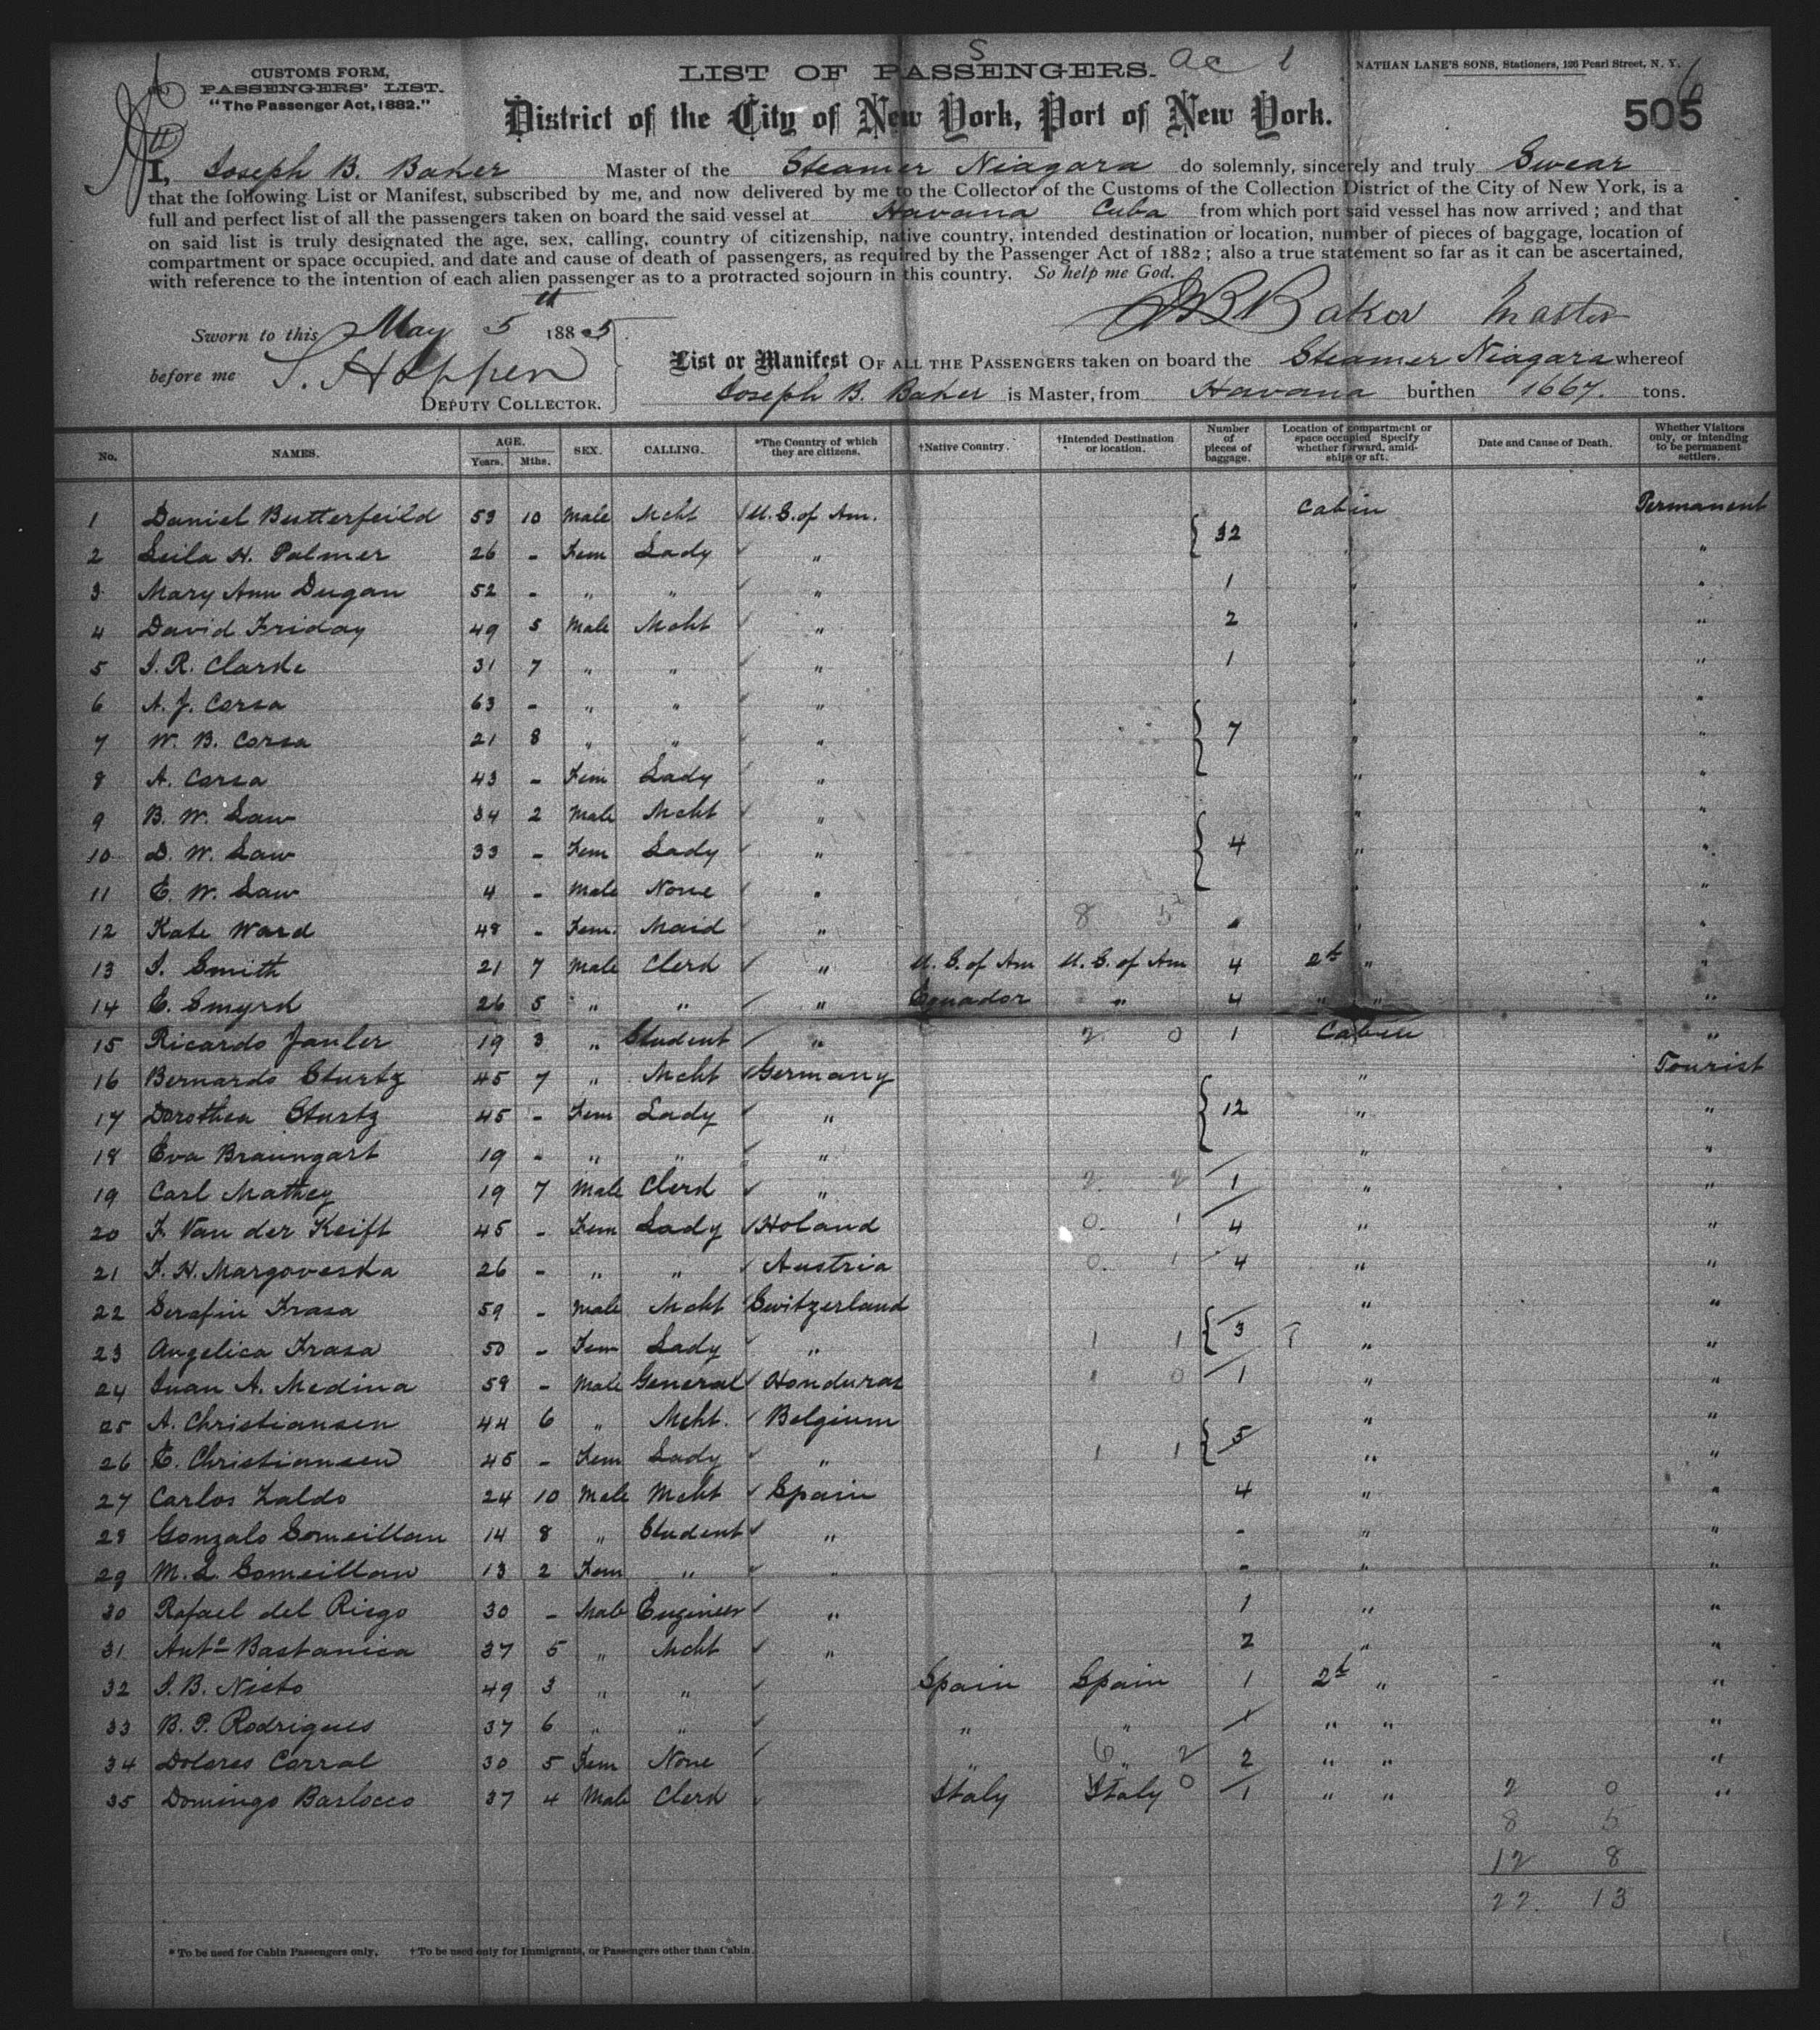 CUSTOMS FORM,
PASSENGERS' LIST.
"The Passenger Act, 1882."
S
LIST OF PASSENGERS.
NATHAN LANE'S SONS, Stationers, 126 Pearl Street, N. Y.
6
District of the City of New York, Port of New York.
505
I, Joseph B. Baker Master of the Steamer Niagara do solemnly, sincerely and truly Swear
that the following List or Manifest, subscribed by me, and now delivered by me to the Collector of the Customs of the Collection District of the City of New York, is a
full and perfect list of all the passengers taken on board the said vessel at Havana Cuba from which port said vessel has now arrived ; and that
on said list is truly designated the age, sex, calling, country of citizenship, native country, intended destination or location, number of pieces of baggage, location of
compartment or space occupied, and date and cause of death of passengers, as required by the Passenger Act of 1882 ; also a true statement so far as it can be ascertained,
with reference to the intention of each alien passenger as to a protracted sojourn in this country. So help me God.
JB Baker Master
Sworn to this May 5th 1885
before me S. Hoppen
DEPUTY COLLECTOR.
List or Manifest OF ALL THE PASSENGERS taken on board the Steamer Niagara whereof
Joseph B. Baker is Master, from Havana burthen 1667. tons.
No. NAMES. AGE. Years. Mths. SEX. CALLING. *The Country of which they are citizens. †Native Country. †Intended Destination or location. Number of pieces of baggage. Location of compartment or space occupied Specify whether forward, amidships or aft. Date and Cause of Death. Whether Visitors only, or intending to be permanent settlers.
1 Daniel Butterfeild 53 10 Male Mcht U.S. of Am. { 32 Cabin Permanent
2 Leila H. Palmer 26 - Fem Lady " " "
3 Mary Ann Dugan 52 - " " " 1 " "
4 David Friday 49 5 Male Mcht " 2 " "
5 J. R. Clarke 31 7 " " " 1 " "
6 A. J. Corsa 63 - " " " " "
7 W. B. Corsa 21 8 " " " { 7 " "
8 A. Corsa 43 - Fem Lady " " "
9 B. W. Law 34 2 Male Mcht " " "
10 D. W. Law 33 - Fem Lady " { 4 " "
11 E. W. Law 4 - Male None " " "
12 Kate Ward 48 - Fem. Maid " 8 5 " " "
13 J. Smith 21 7 Male Clerk " U.S. of Am U.S. of Am 4 2d " "
14 E. Smyrk 26 5 " " " Ecuador " 4 " " "
15 Ricardo Janler 19 3 " Student " 2 0 1 Cabin "
16 Bernardo Sturtz 45 7 " Mcht Germany " Tourist
17 Dorothea Sturtz 45 - Fem Lady " { 12 " "
18 Eva Braungart 19 - " " " " "
19 Carl Mathey 19 7 Male Clerk " 2 2 1 " "
20 F. Van der Keift 45 - Fem Lady Holand 0. 1 4 " "
21 F. H. Margoveska 26 - " " Austria 0. 1 4 " "
22 Serafin Frasa 59 - Male Mcht Switzerland " "
23 Angelica Frasa 50 - Fem Lady " 1 1 { 3 " "
24 Juan A. Medina 59 - Male General Honduras 1 0 1 " "
25 A. Christiansen 44 6 " Mcht. Belgium " "
26 E. Christiansen 45 - Fem Lady " 1 1 { 5 " "
27 Carlos Zaldo 24 10 Male Mcht Spain 4 " "
28 Gonzalo Someillan 14 8 " Student " - " "
29 M. L. Someillan 13 2 Fem " " - " "
30 Rafael del Riego 30 - Male Engineer " 1 " "
31 Anto Bastanica 37 5 " Mcht " 2 " "
32 J. B. Nieto 49 3 " " Spain Spain 1 2d " "
33 B. P. Rodrigues 37 6 " " " " 1 " " "
34 Dolores Corral 30 5 Fem None " 6 " 2 2 " " "
35 Domingo Barlocco 37 4 Male Clerk Italy Italy 0 1 " " 2 0 "
8 5
12 8
22 13
* To be used for Cabin Passengers only. † To be used only for Immigrants, or Passengers other than Cabin.